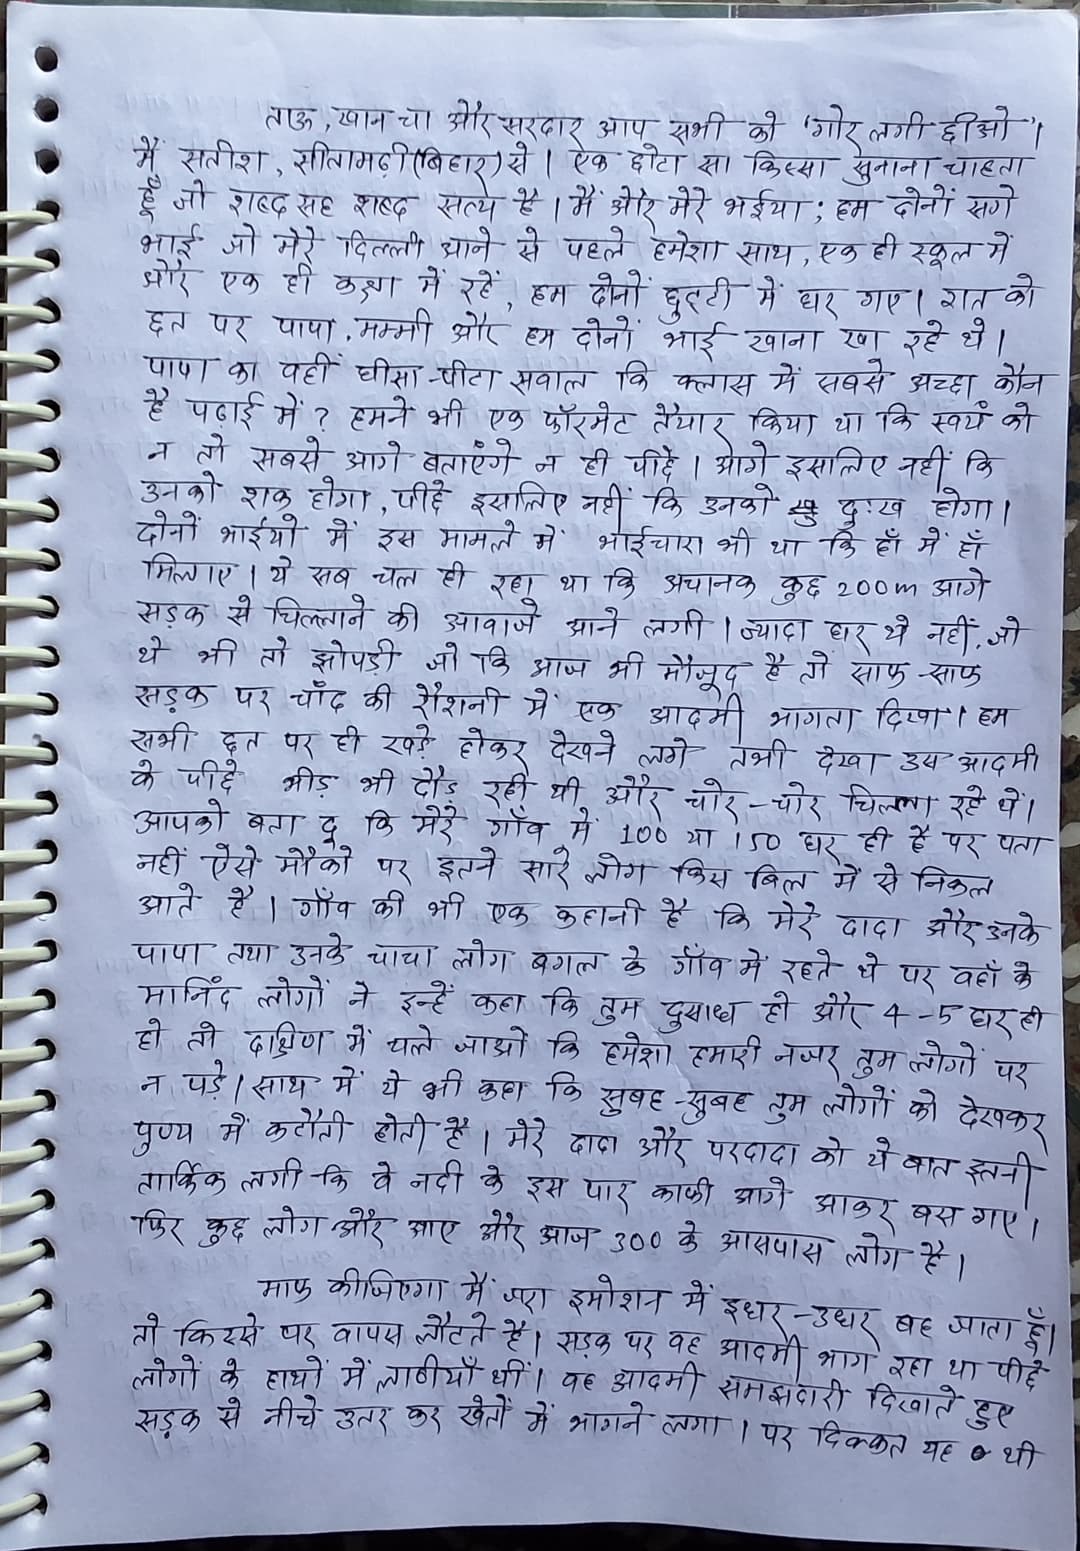 ताऊ, खान चा और सरदार आप सभी को 'गोर लगी छीओ'।
मैं सतीश, सीतामढ़ी(बिहार) से। एक छोटा सा किस्सा सुनाना चाहता
हूँ जो शब्द सह शब्द सत्य है। मैं और मेरे भईया; हम दोनों सगे
भाई जो मेरे दिल्ली आने से पहले हमेशा साथ, एक ही स्कूल में
और एक ही कक्षा में रहें, हम दोनों छुट्टी में घर गए। रात को
छत पर पापा, मम्मी और हम दोनों भाई खाना खा रहे थे।
पापा का वही घीसा-पीटा सवाल कि क्लास में सबसे अच्छा कौन
है पढ़ाई में? हमने भी एक फॉरमेट तैयार किया था कि स्वयं को
न तो सबसे आगे बताएंगे न ही पीछे। आगे इसलिए नहीं कि
उनको शक होगा, पीछे इसलिए नहीं कि उनको दुःख होगा।
दोनों भाईयों में इस मामले में भाईचारा भी था कि हाँ में हाँ
मिलाए। ये सब चल ही रहा था कि अचानक कुछ 200m आगे
सड़क से चिल्लाने की आवाजे आने लगी। ज्यादा घर थे नहीं, जो
थे भी तो झोपड़ी जो कि आज भी मौजूद है तो साफ-साफ
सड़क पर चाँद की रौशनी में एक आदमी भागता दिखा। हम
सभी छत पर ही खड़े होकर देखने लगे तभी देखा उस आदमी
के पीछे भीड़ भी दौड़ रही थी और चोर-चोर चिल्ला रहे थे।
आपको बता दू कि मेरे गाँव में 100 या 150 घर ही है पर पता
नहीं ऐसे मौको पर इतने सारे लोग किस बिल में से निकल
आते है। गाँव की भी एक कहानी है कि मेरे दादा और उनके
पापा तथा उनके चाचा लोग बगल के गाँव में रहते थे पर वहाँ के
मानिंद लोगों ने इन्हें कहा कि तुम दुसाध हो और 4-5 घर ही
हो तो दक्षिण में चले जाओ कि हमेशा हमारी नजर तुम लोगों पर
न पड़े। साथ में ये भी कहा कि सुबह-सुबह तुम लोगों को देखकर
पुण्य में कटौती होती है। मेरे दादा और परदादा को ये बात इतनी
तार्किक लगी कि वे नदी के इस पार काफी आगे आकर बस गए।
फिर कुछ लोग और आए और आज 300 के आसपास लोग है।
माफ कीजिएगा मैं जरा इमोशन में इधर-उधर बह जाता हूँ।
तो किस्से पर वापस लौटते है। सड़क पर वह आदमी भाग रहा था पीछे
लोगों के हाथों में लाठीयाँ थीं। वह आदमी समझदारी दिखाते हुए
सड़क से नीचे उतर कर खेतों में भागने लगा। पर दिक्कत यह थी